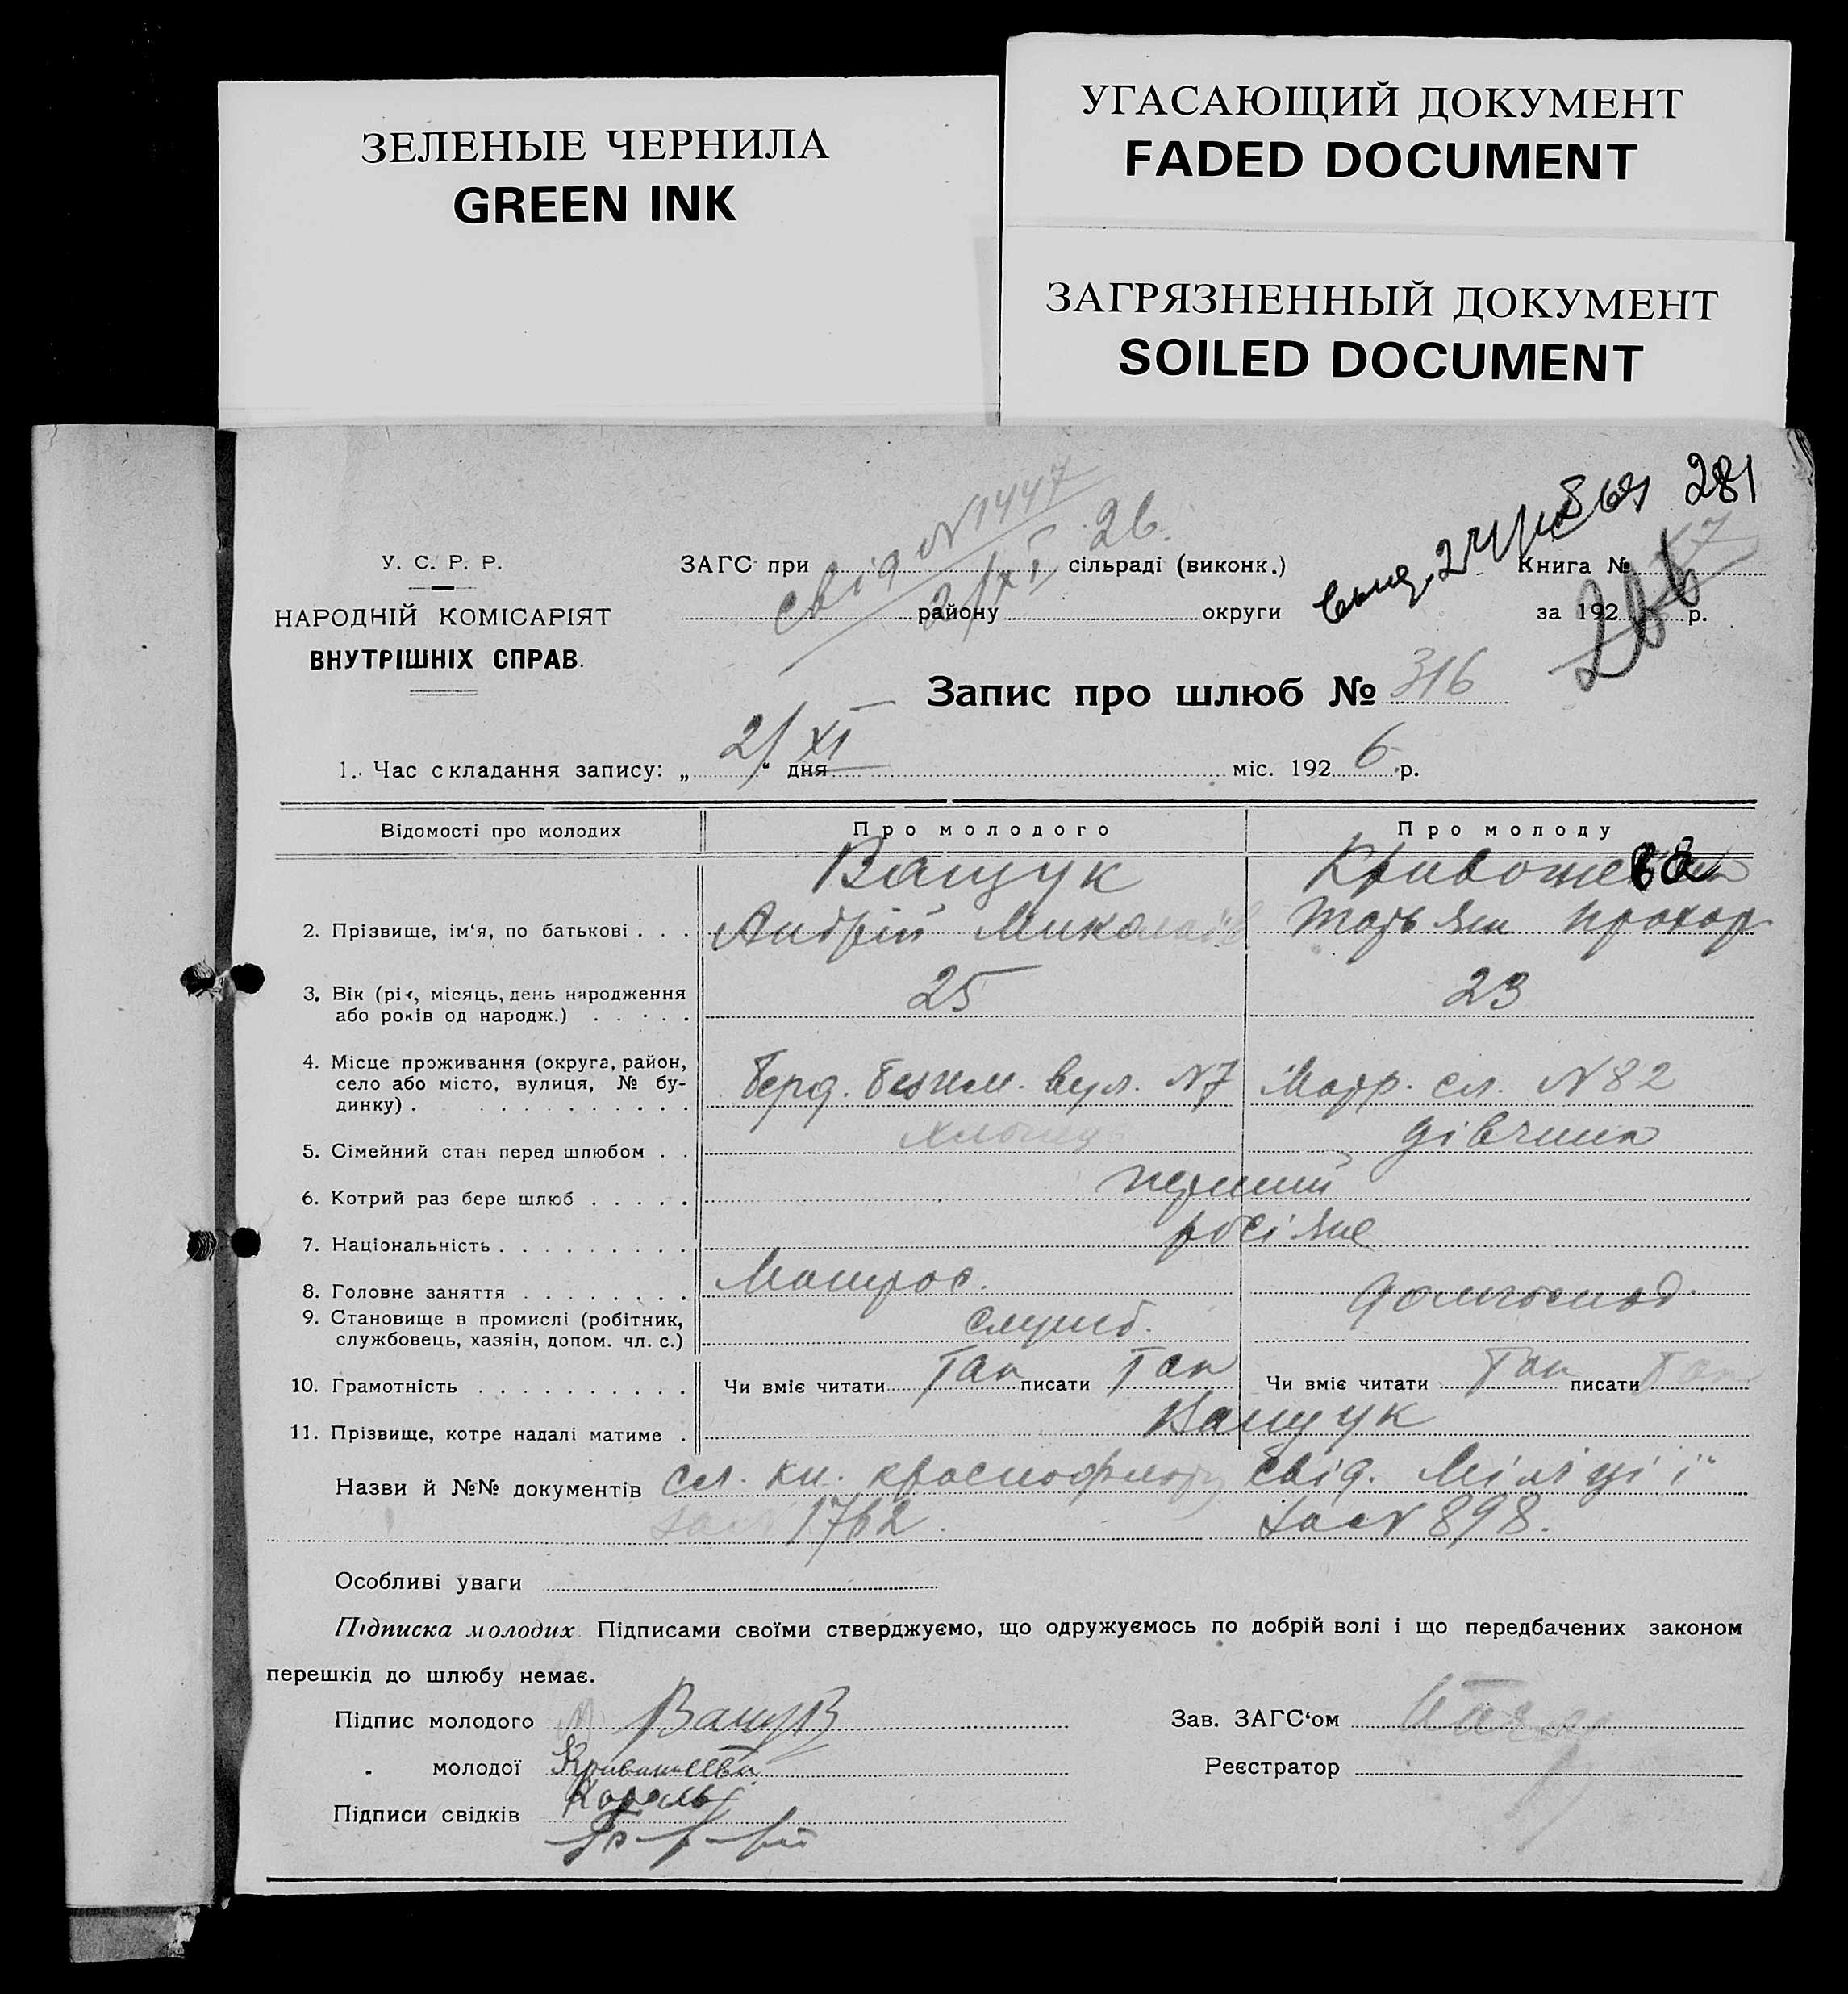 ЗЕЛЕНЫЕ ЧЕРНИЛА
GREEN INK
УГАСАЮЩИЙ ДОКУМЕНТ
FADED DOCUMENT
ЗАГРЯЗНЕННЫЙ ДОКУМЕНТ
SOILED DOCUMENT
281
свід N 1447
2/XI 26.
У. С. Р. Р.
НАРОДНІЙ КОМІСАРІЯТ
ВНУТРІШНІХ СПРАВ.
ЗАГС при сільраді (виконк.)
району округи
Книга №
за 192 р.
Запис про шлюб № 316
1. Час складання запису: „ 2/XI “ дня міс. 192 6 р.
Відомості про молодих Про молодого Про молоду
Ващук
2. Прізвище, ім‘я, по батькові . . . Андрій Прохор
3. Вік (рік, місяць, день народження
або років од народж.) . . . . . 25 23
4. Місце проживання (округа, район,
село або місто, вулиця, № бу-
динку) . . . . . . . . . . . . Берд. Безим. вул. N7 Матр. сл. N 82
5. Сімейний стан перед шлюбом . . хлопець дівчина
6. Котрий раз бере шлюб . . . . . перший
7. Національність . . . . . . . . . росіяне
8. Головне заняття . . . . . . . . Матрос. домгоспод.
9. Становище в промислі (робітник,
службовець, хазяїн, допом. чл. с.) служб.
10. Грамотність . . . . . . . . . . Чи вміє читати Так писати Так Чи вміє читати Так писати Так
11. Прізвище, котре надалі матиме . Ващук
Назви й №№ документів сл. кн. краснофлоту свід. Міліції
1762. за N 898.
Особливі уваги
Підписка молодих. Підписами своїми стверджуємо, що одружуємось по добрій волі і що передбачених законом
перешкід до шлюбу немає.
Підпис молодого Зав. ЗАГС‘ом
„ молодої Кривошеева Реєстратор
Підписи свідків Король